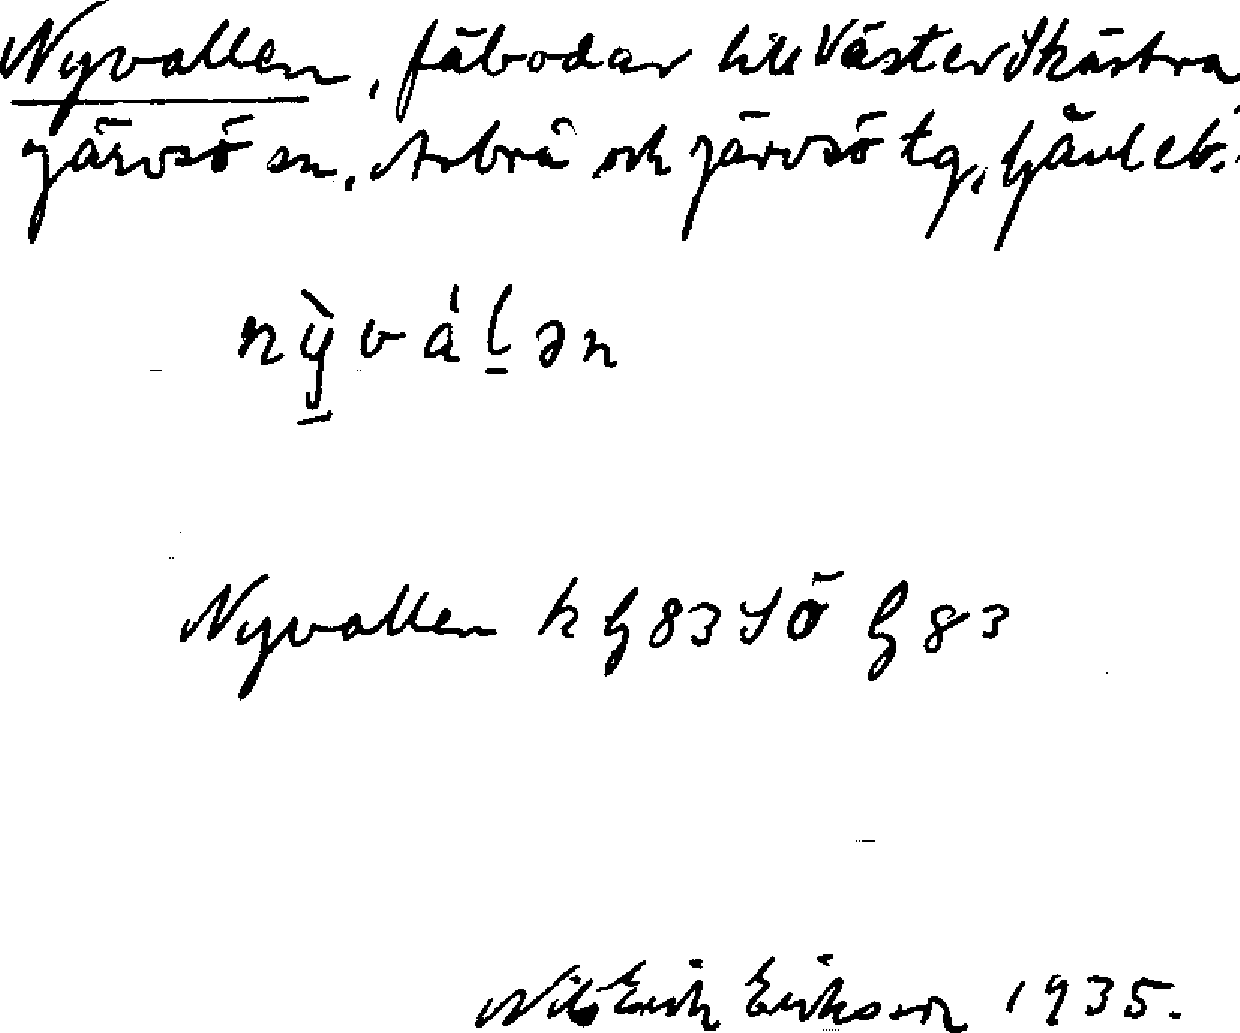 Nyvallen, fäbodar till Västerskästra
Järvsö sn, Arbrå och Järvsö tg, Gävleb.
nỳváḻən
Nyvallen k G 83 SÖ G 83
Nils Erik Eriksson 1935.